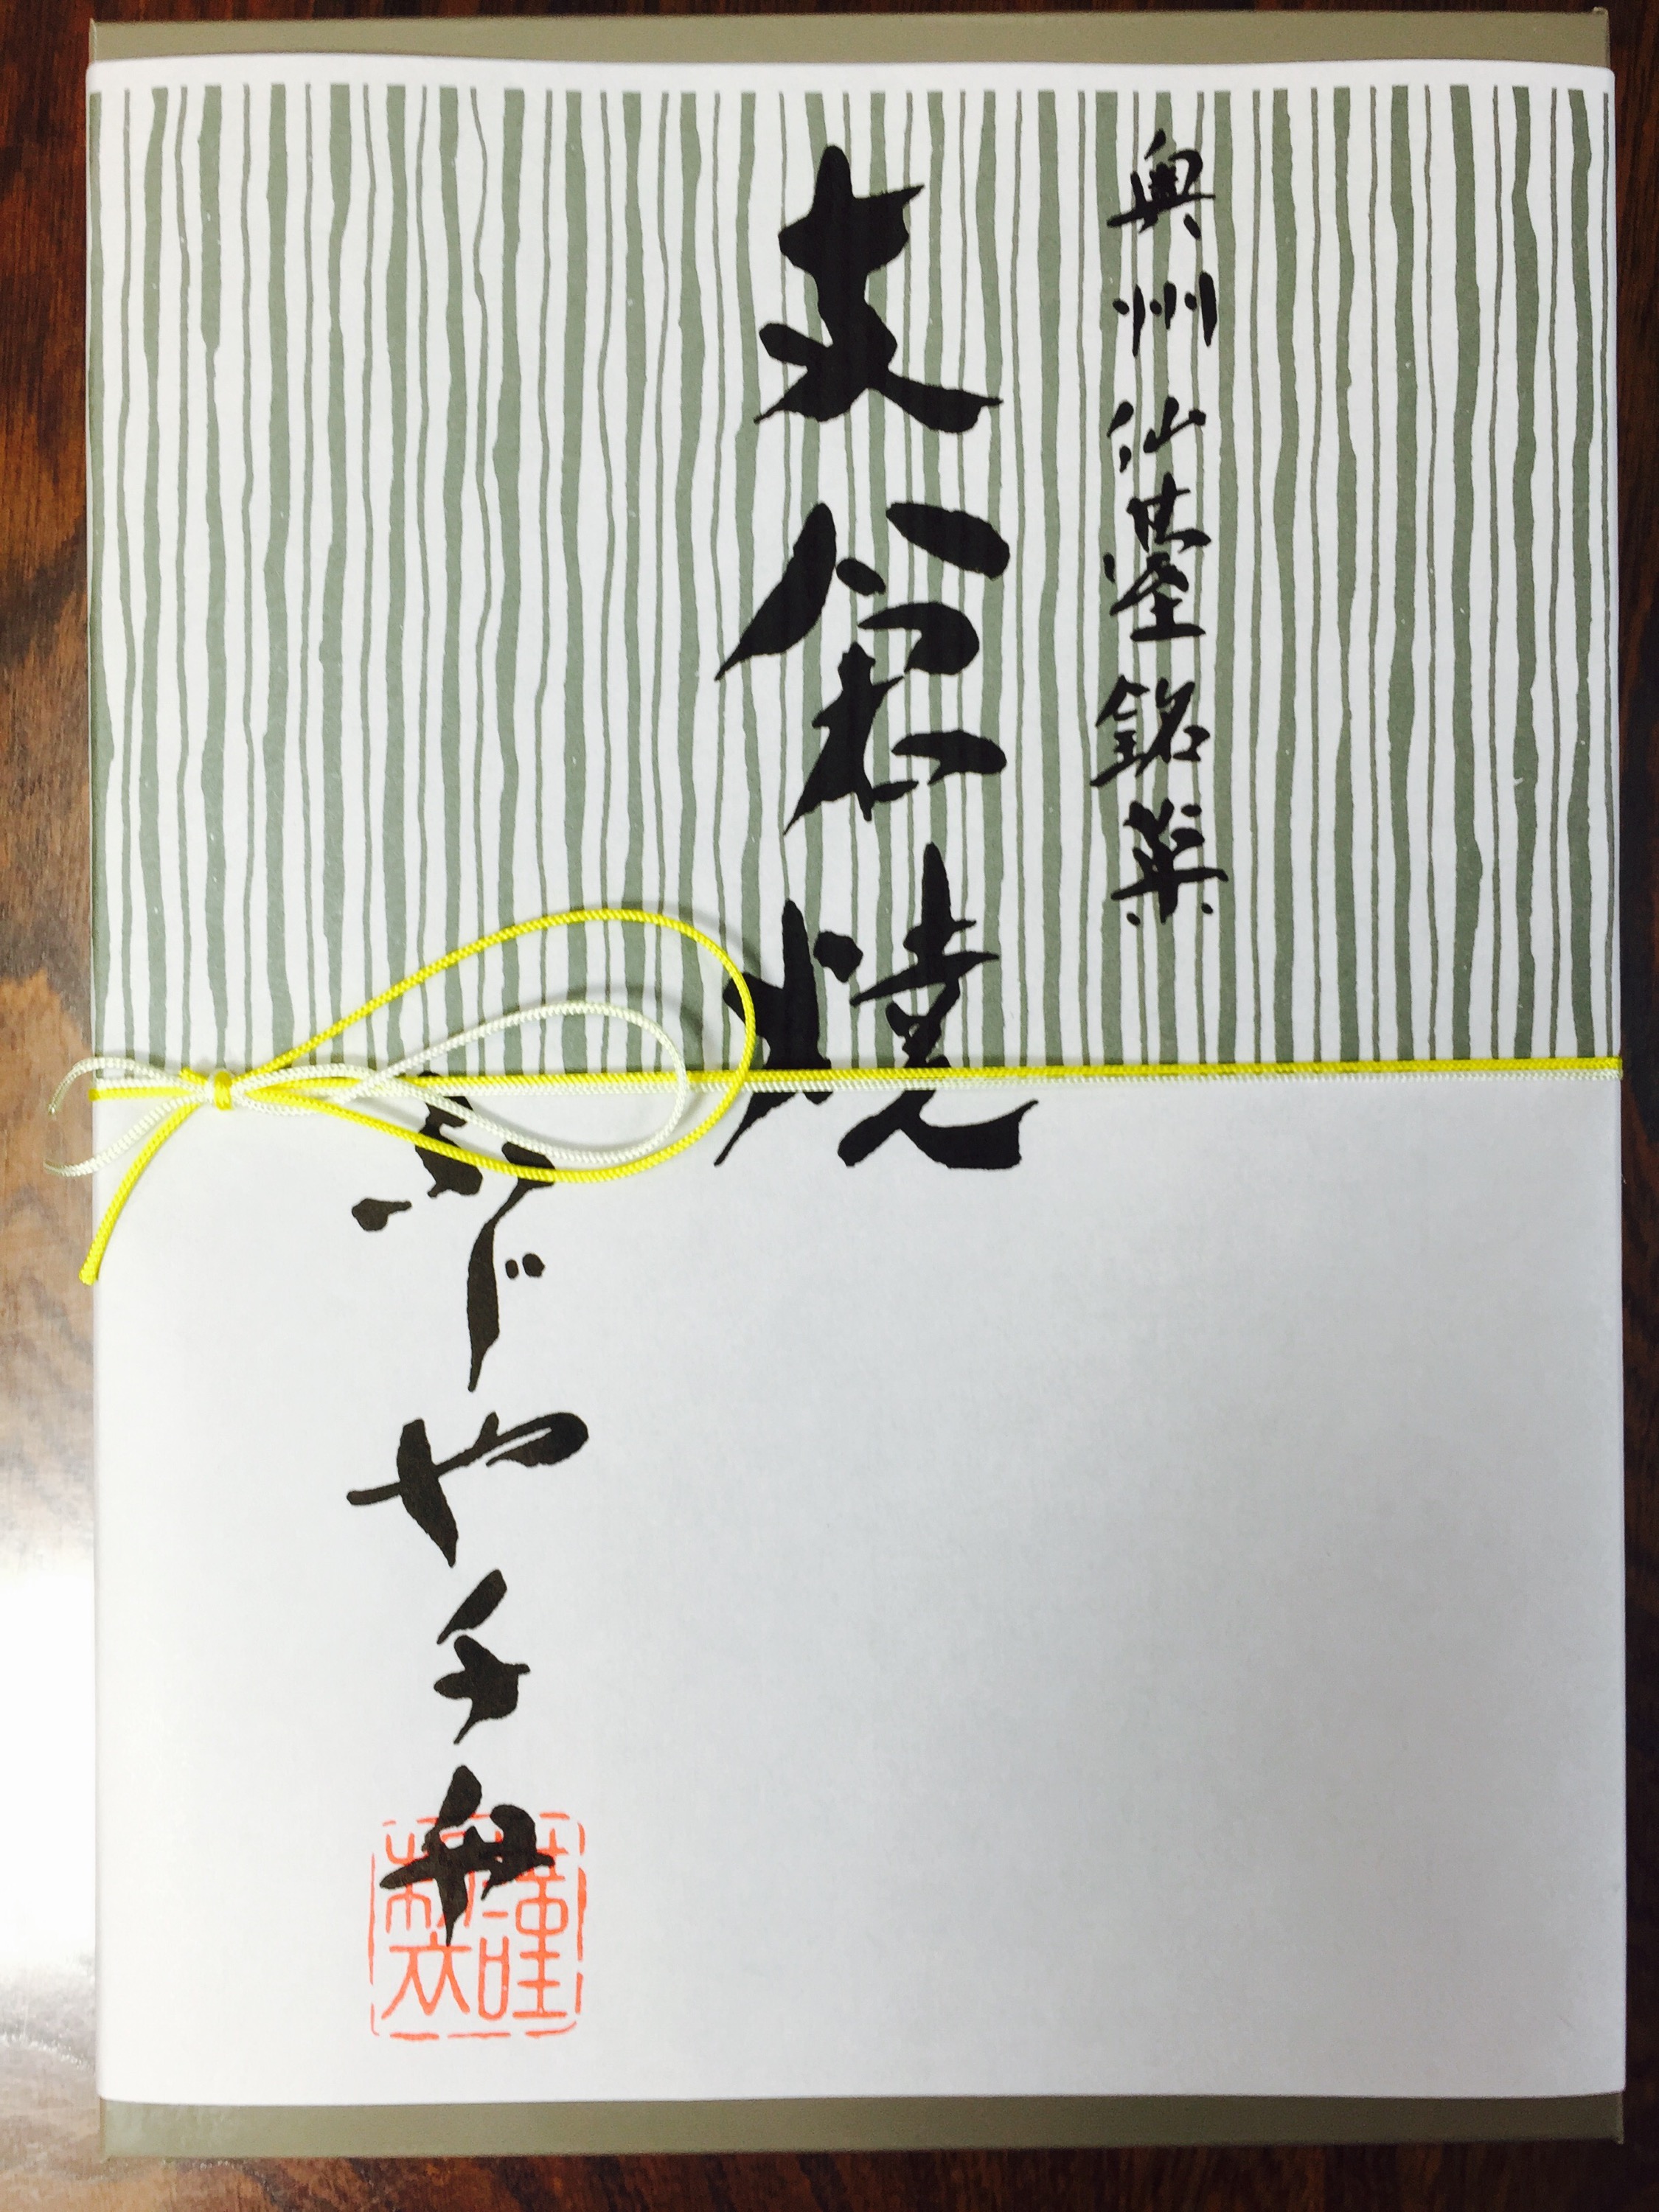 奥州仙臺銘菓
支倉焼
ふじや千舟